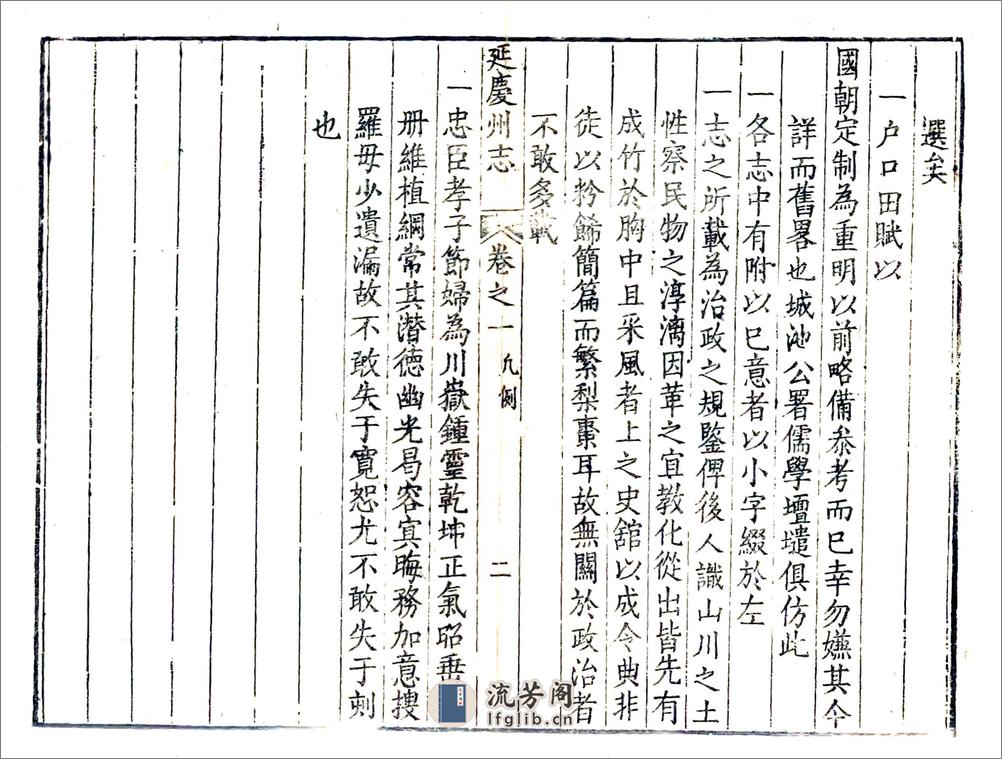 選矣
一户口田賦以
國朝定制為重明以前略備叅考而已幸勿嫌其今
詳而舊畧也城池公署儒學壇壝俱仿此
一各志中有附以已意者以小字綴於左
一志之所載為治政之規鑒俾後人識山川之土
性察民物之淳漓因革之宜教化從出皆先有
成竹於胸中且采風者上之史舘以成令典非
徒以矜餙簡篇而繁梨棗耳故無關於政治者
不敢多載
延慶州志 卷之一 凢例 二
一忠臣孝子節婦為川嶽鍾靈乾坤正氣昭垂
册維植綱常其潜德幽光曷容寘晦務加意搜
羅毋少遺漏故不敢失于寛恕尤不敢失于刻
也
流芳阁
lfglib.cn